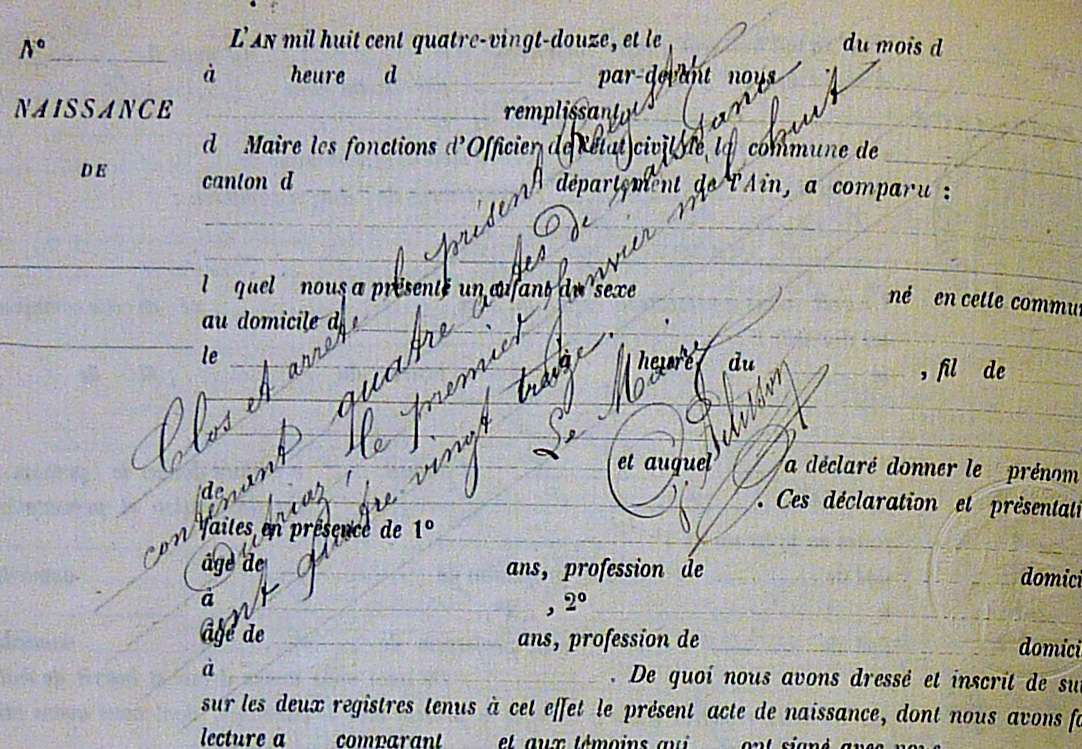 N° L'AN mil huit cent quatre-vingt-douze, et le du mois d
à heure d par-devant nous
NAISSANCE remplissant
d Maire les fonctions d'Officier de l'état civil de la commune de
DE
canton d département de l'Ain, a comparu :
l quel nous a présenté un enfant du sexe né en cette commun
au domicile d
le à heure du , fil de
et auquel a déclaré donner le prénom
de . Ces déclaration et présentati
faites en présence de 1°
âgé de ans, profession de domici
à , 2°
âgé de ans, profession de domici
à . De quoi nous avons dressé et inscrit de sui
sur les deux registres tenus à cet effet le présent acte de naissance, dont nous avons fa
lecture a comparant et aux témoins qui ont signé avec nous
Clos et arrêté le présent Registre
contenant quatre actes de naissance
le premier Janvier mil huit
cent quatre-vingt treize.
Le Maire